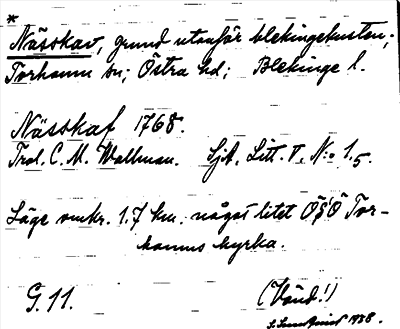 *
Nässkav, grund utanför blekingekusten;
Torhamn sn; Östra hd; Blekinge l.
Nässkaf 1768.
Trol. C. M. Wallman. Sjk. Litt. V. N:o 1,5.
Läge omkr. 1.7 km. något litet ÖSÖ Tor-
hamns kyrka.
G. 11.
(Vänd!)
1938.